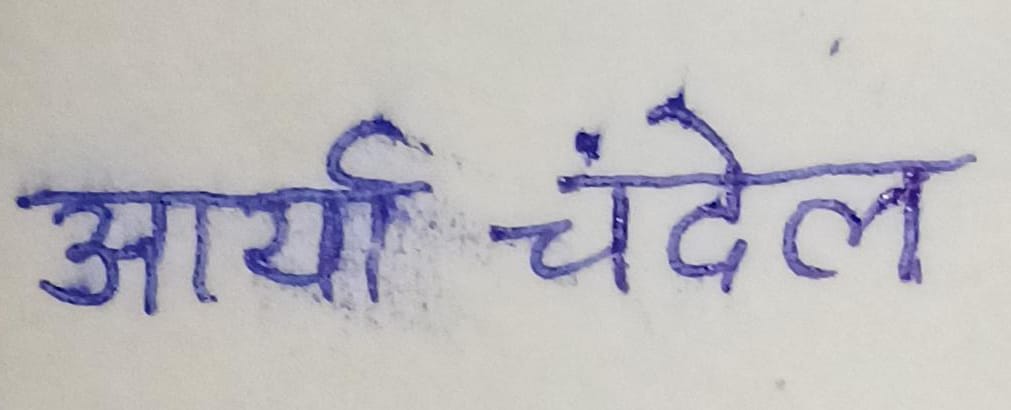 आर्या चंदेल